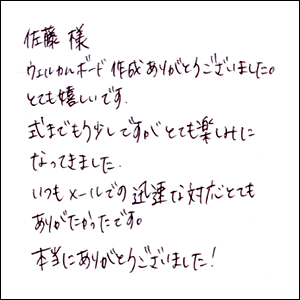 佐藤 様
ウェルカムボード作成ありがとうございました。
とても嬉しいです.
式までもう少しですが とても楽しみに
なってきました.
いつもメールでの迅速な対応とても
ありがたかったです。
本当にありがとうございました!